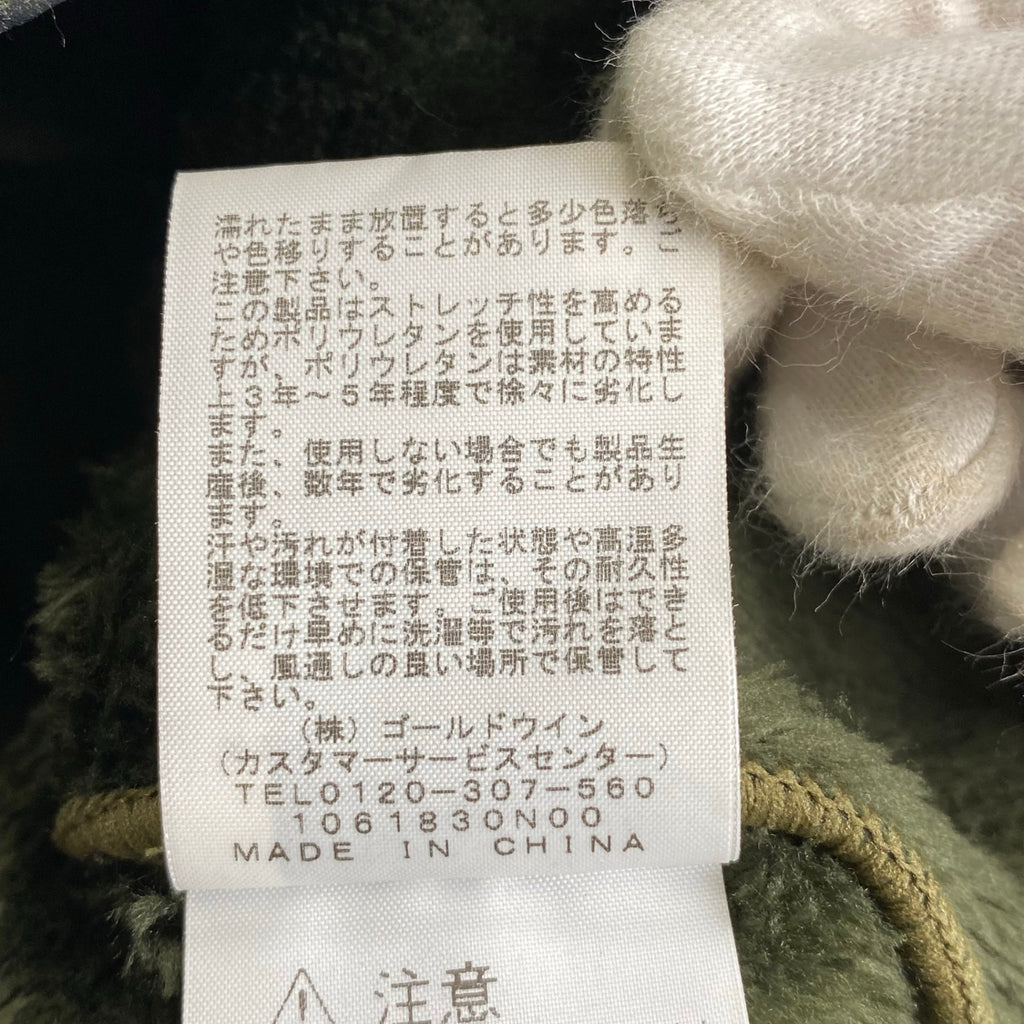 濡れたまま放置すると多少色落ち
や色移りすることがあります。ご
注意下さい。
この製品はストレッチ性を高める
ためポリウレタンを使用していま
すが、ポリウレタンは素材の特性
上3年～5年程度で徐々に劣化し
ます。
また、使用しない場合でも製品生
産後、数年で劣化することがあり
ます。
汗や汚れが付着した状態や高温多
湿な環境での保管は、その耐久性
を低下させます。ご使用後はでき
るだけ早めに洗濯等で汚れを落と
し、風通しの良い場所で保管して
下さい。
(株)ゴールドウイン
(カスタマーサービスセンター)
TEL0120-307-560
1061830N00
MADE IN CHINA
注意